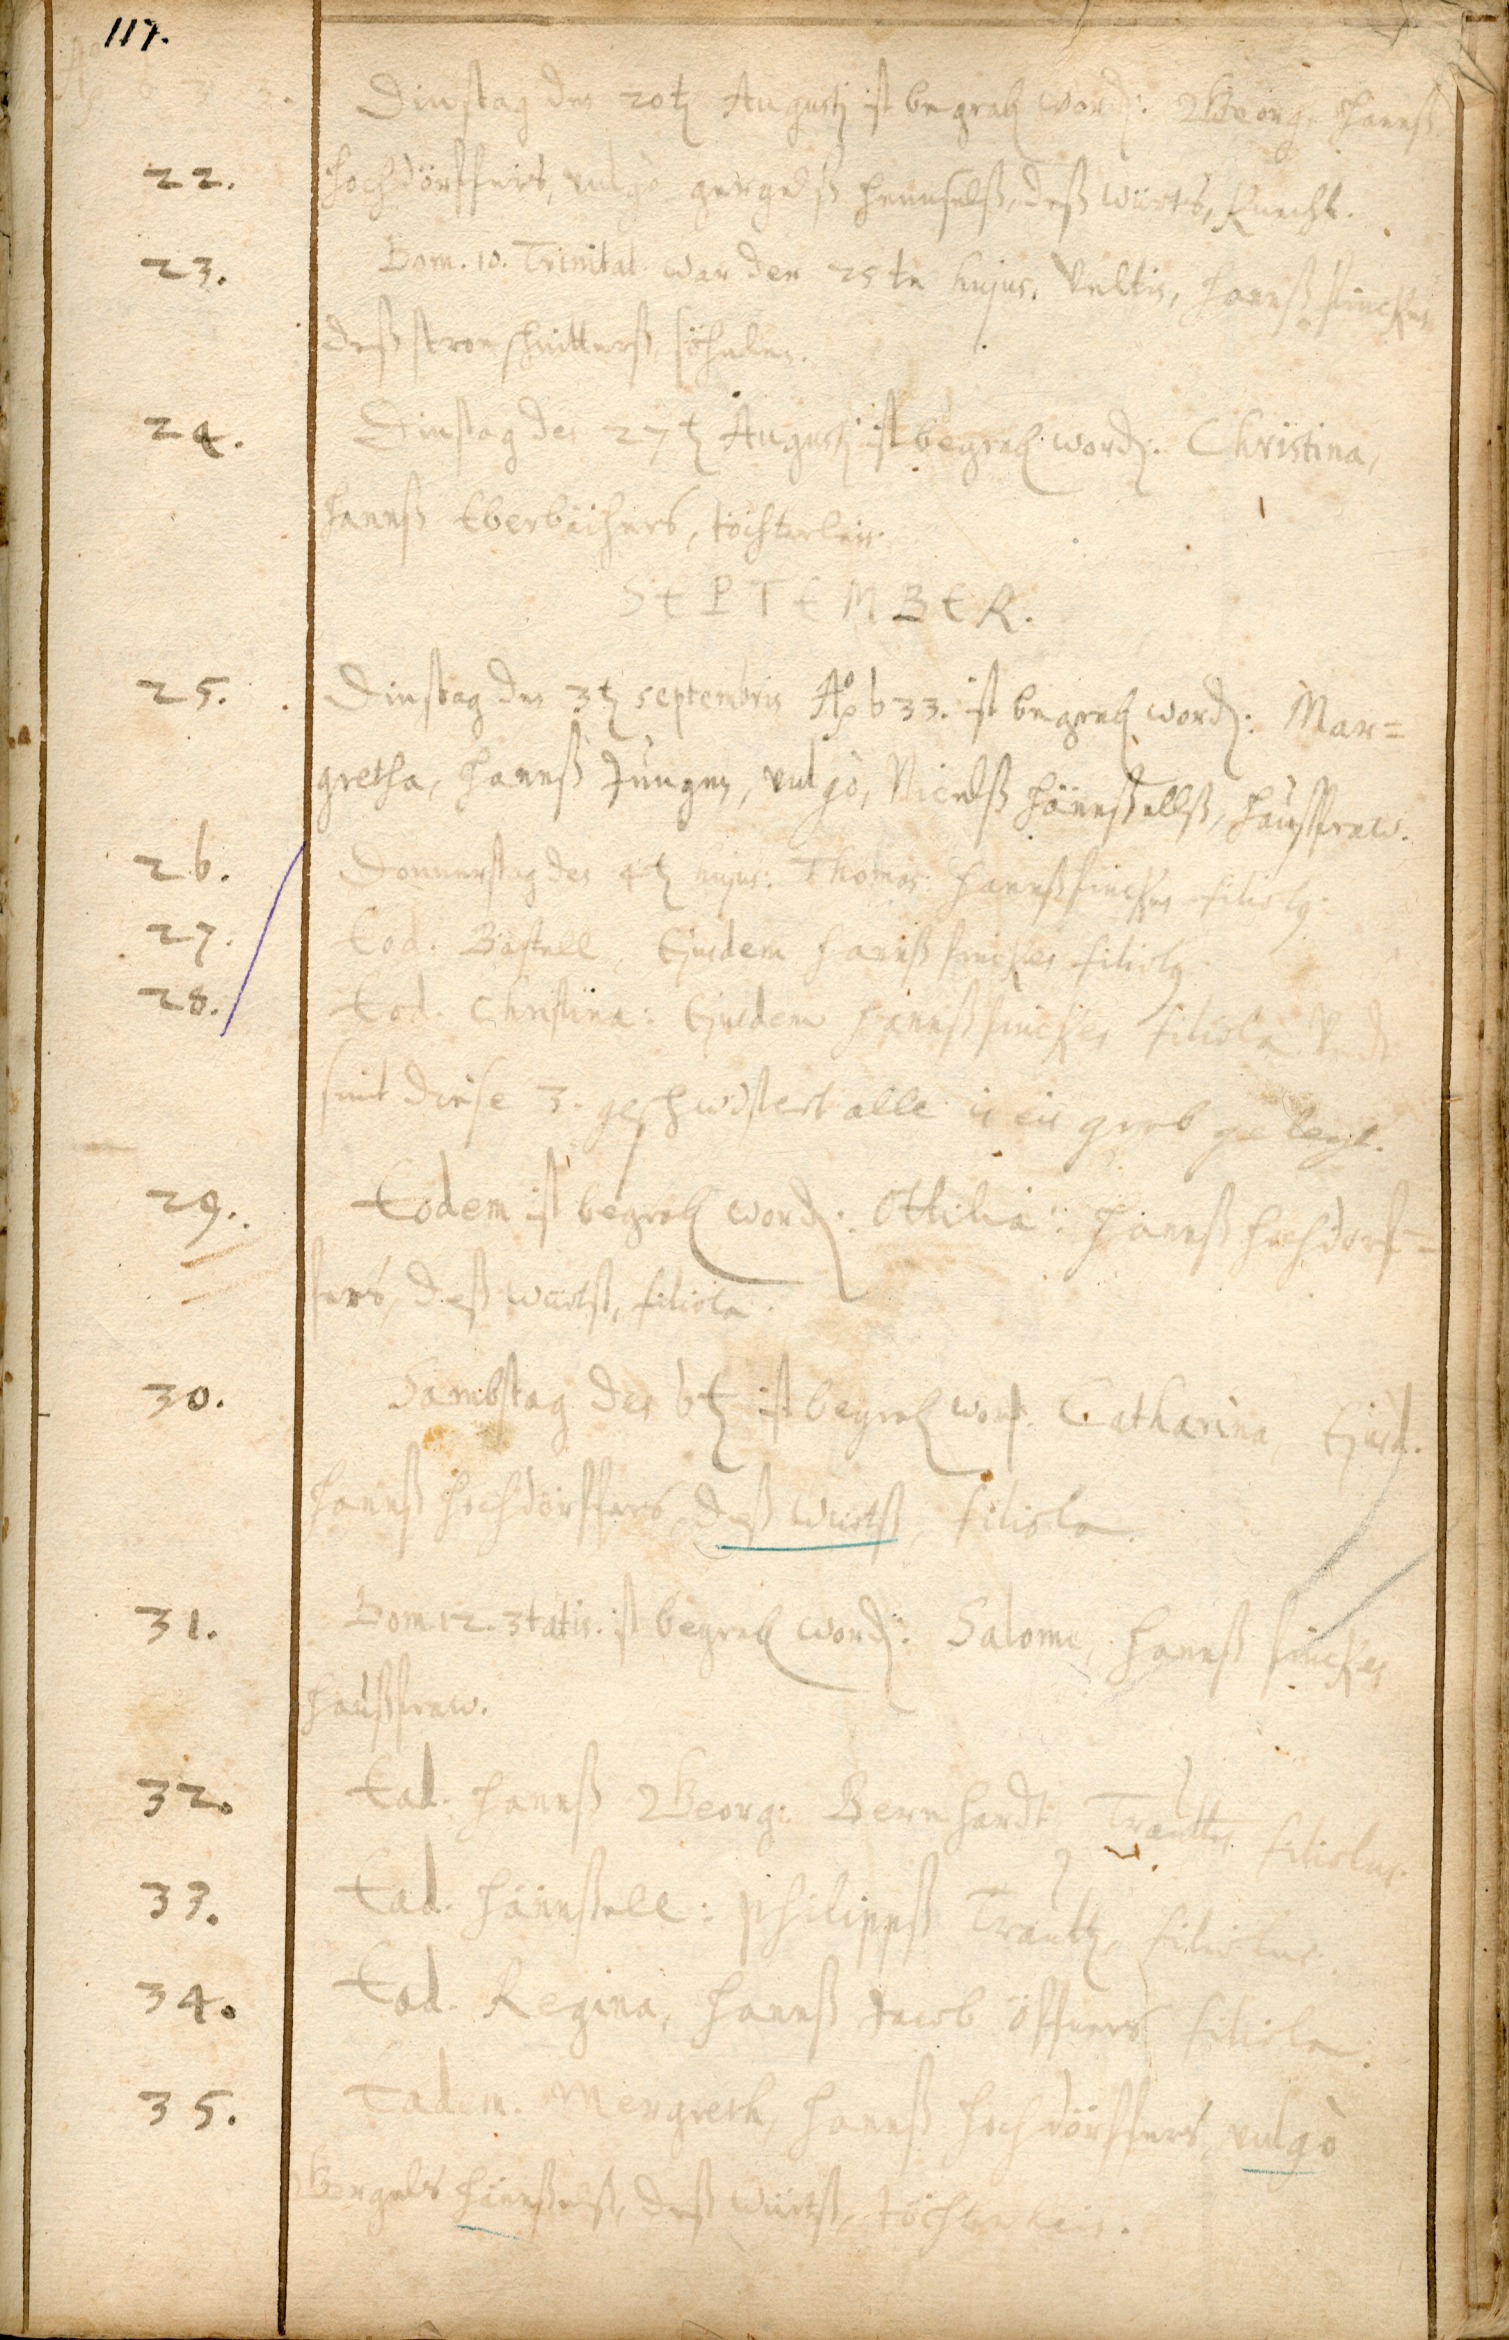 117.
Ao 633.
Dinstag des 20t Augusti ist begrab word: Georg, Hannß
22. Hochdörffers, vulgò gergelß hennselß, deß würts, Knecht.
23. Dom. 10. Trinitat. war der 25te hujus. Veltin, Hannß finckes
deß stroschnitterß, söhnlen.
24. Dinstag des 27t Augusti ist begrab word: Christina,
Hannß Eberbächers, töchterlein.
SEPTEMBER.
25. Dinstag des 3t septembris Ao 633. ist begrab word: Mar=
gretha, Hannß Jungen, vulgò, Nicelß hännßellß, haußfraw.
26. Donnerstag des 4t hujus: Thomas: Hannß finckes filiol9.
27. Eod. Bastell, Ejusdem Hannß finckes filiol9.
28. Eod. Christina: Ejusdem Hannß finckes filiola. Vnd
sint diese 3. geschwistert alle in ein grab gelegt.
29. Eodem ist begrab word: Ottilia: Hannß Hochdörf=
fers, deß würtß, filiola.
30. Sambstag des 6t ist begrab word. Catharina, Ejusd.
Hannß Hochdörffers, deß würtß, filiola.
31. Dom. 12. 3tatis. ist begrab word: Salome, Hannß finckes
haußfraw.
32. Ead. Hannß Georg: Bernhardt Trautten filiolus.
33. Ead. Hännßell: Philippß Trautten, filiolus.
34. Ead. Regina, Hannß Jacob öffners filiola.
35. Eadem. Mergreth, Hannß Hochdörffers, vulgò
Gergels hännßelß, deß würtß, töchterlein.